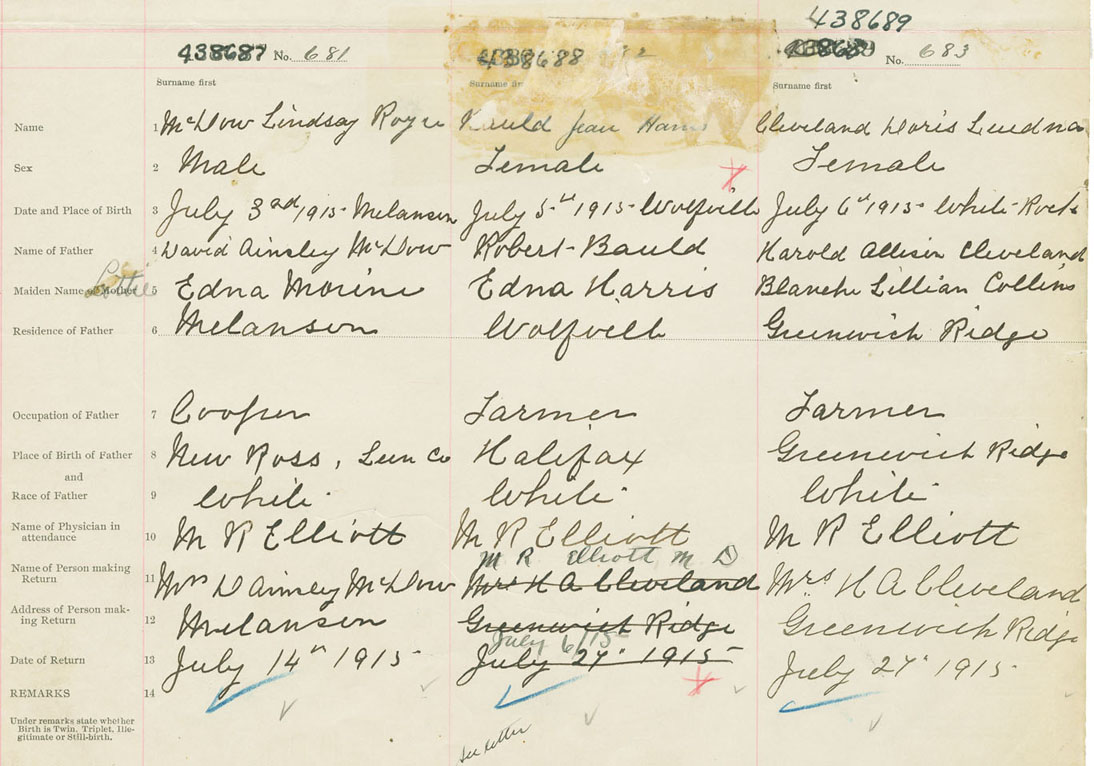 438689
438687 No. 681 438688 No. 683
Surname first Surname Surname first
Name 1 McDow Lindsay Royce Jean Harris Cleveland Doris Luedna
Sex 2 Male Female Female
Date and Place of Birth 3 July 3rd 1915 - Melanson July 5th 1915 - Wolfville July 6th 1915 - White Rock
Name of Father 4 David Ainsley McDow Robert Bauld Harold Allison Cleveland
Lottie
Maiden Name of Mother 5 Edna Morine Edna Harris Blanche Lillian Collins
Residence of Father 6 Melanson Wolfville Greenwich Ridge
Occupation of Father 7 Cooper Farmer Farmer
Place of Birth of Father 8 New Ross, Lun Co Halifax Greenwich Ridge
and
Race of Father 9 White White White
Name of Physician in
attendance 10 M R Elliott M R Elliott M R Elliott
M R Elliott M D
Name of Person making
Return 11 Mrs D Ainsley McDow Mrs H A Cleveland Mrs H A Cleveland
Address of Person mak-
ing Return 12 Melanson Greenwich Ridge Greenwich Ridge
July 6/15
Date of Return 13 July 14th 1915 July 27th 1915 July 27th 1915
REMARKS 14
Under remarks state whether
Birth is Twin, Triplet, Ille-
gitimate or Still-birth.
See letter